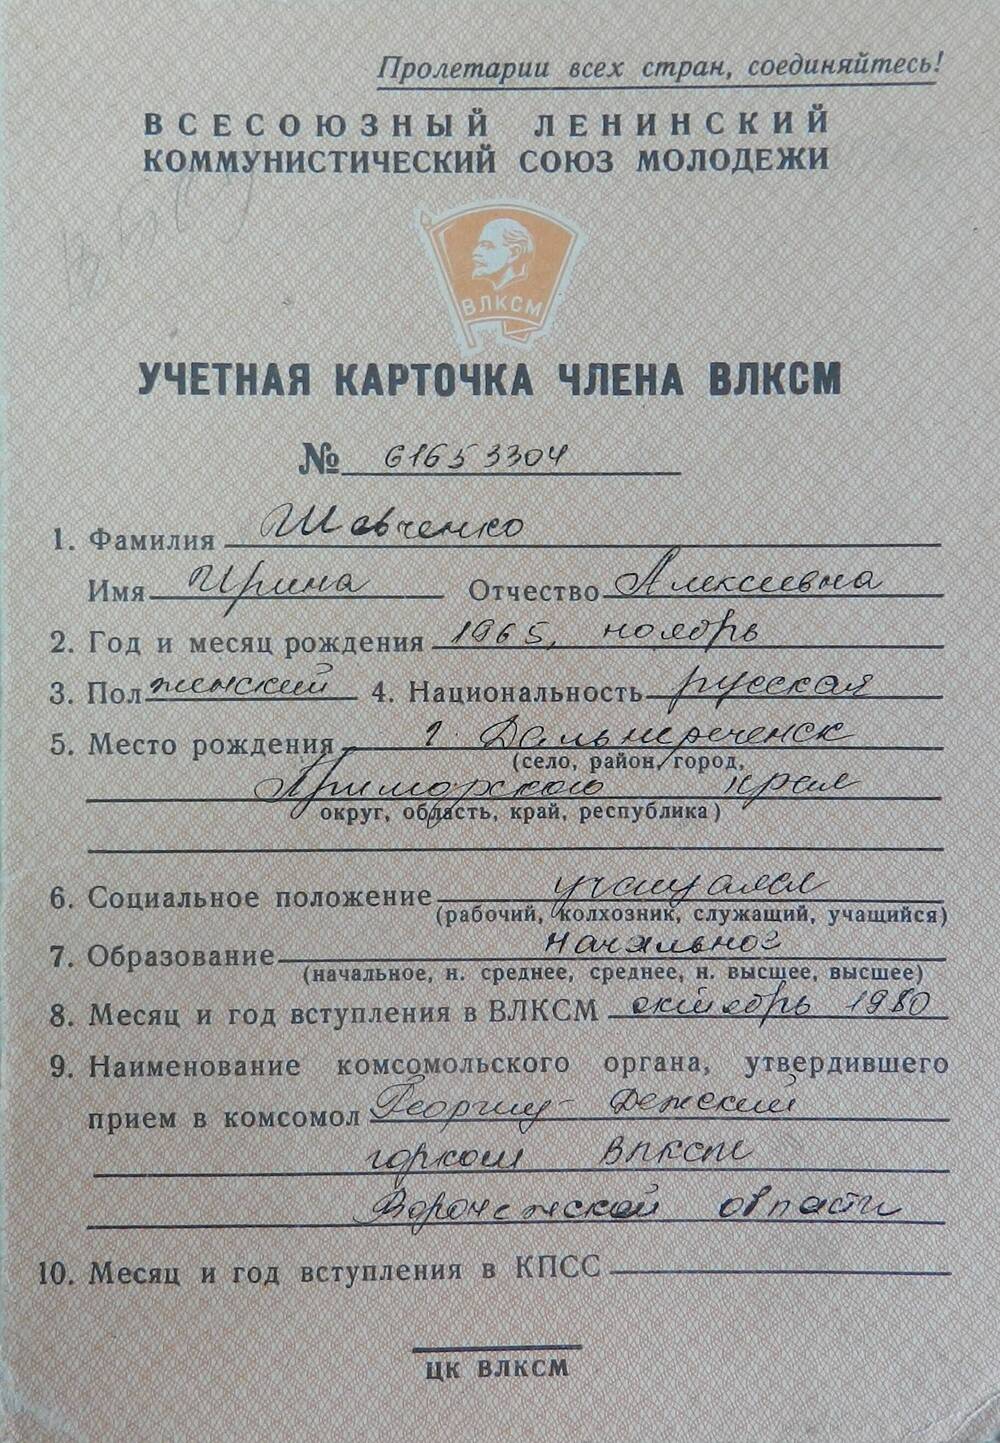 Пролетарии всех стран, соединяйтесь!
ВСЕСОЮЗНЫЙ ЛЕНИНСКИЙ
КОММУНИСТИЧЕСКИЙ СОЮЗ МОЛОДЕЖИ
ВЛКСМ
УЧЕТНАЯ КАРТОЧКА ЧЛЕНА ВЛКСМ
№ 61653304
1. Фамилия Шевченко
Имя Ирина Отчество Алексеевна
2. Год и месяц рождения 1965, ноябрь
3. Пол женский 4. Национальность русская
5. Место рождения г. Дальнереченск
(село, район, город,
Приморского края
округ, область, край, республика)
6. Социальное положение учащаяся
(рабочий, колхозник, служащий, учащийся)
7. Образование начальное
(начальное, н. среднее, среднее, н. высшее, высшее)
8. Месяц и год вступления в ВЛКСМ октябрь 1980
9. Наименование комсомольского органа, утвердившего
прием в комсомол Георгиу-Дежский
горком ВЛКСМ
Воронежской области
10. Месяц и год вступления в КПСС
ЦК ВЛКСМ